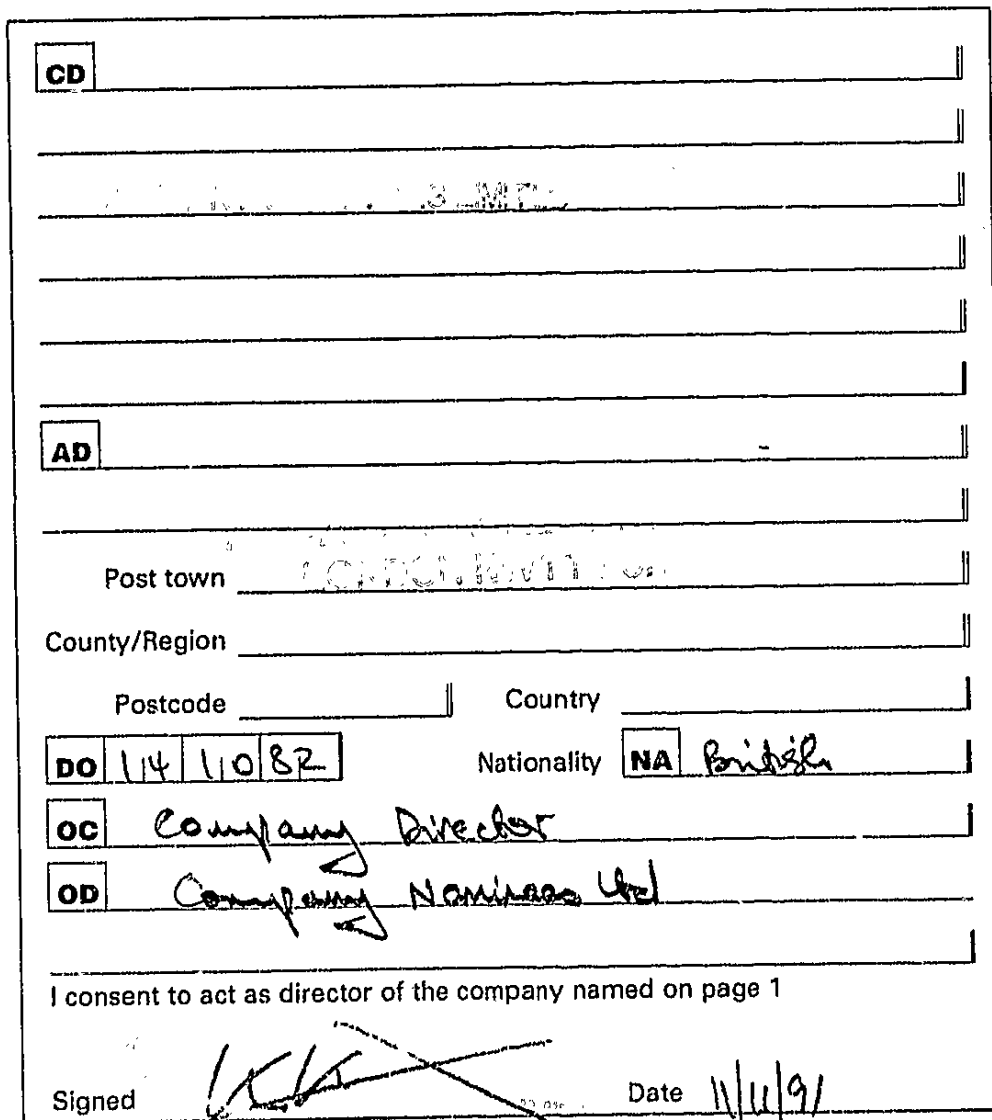 CD
AD
Post town
County/Region
Postcode Country
DO 14 10 82 Nationality NA British
OC Company Director
OD Company Nominees Ltd
I consent to act as director of the company named on page 1
Signed Date 11/11/91